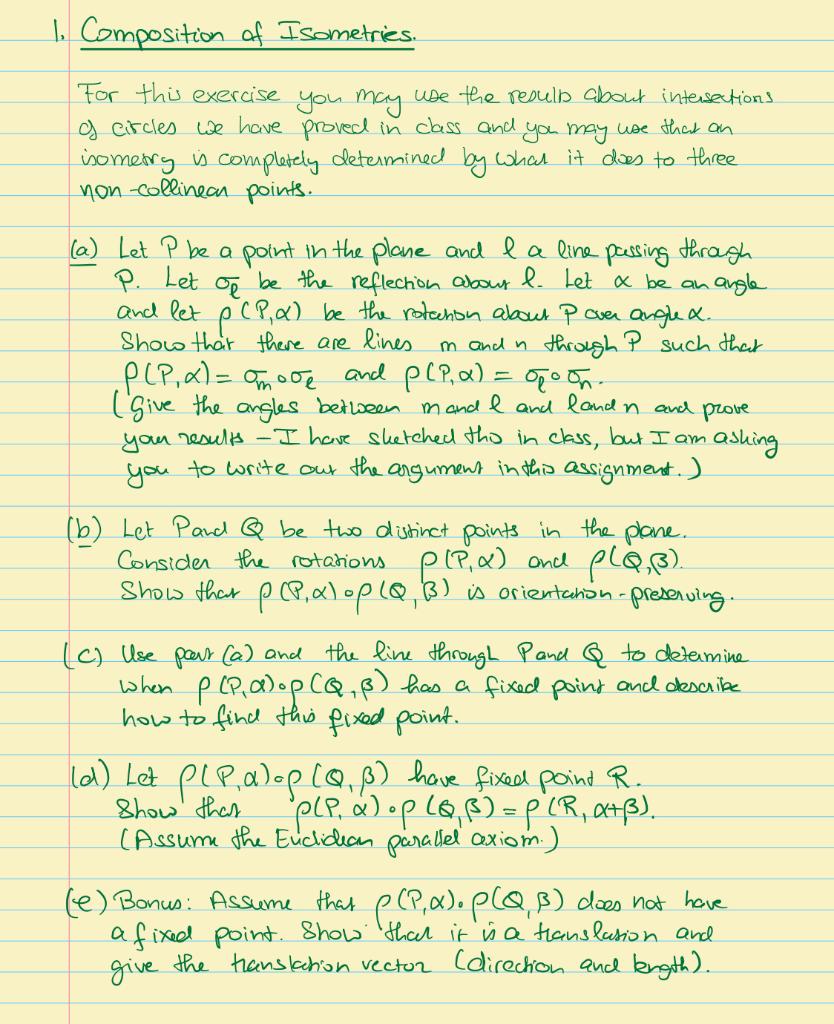 1. Composition of Isometries.
For this exercise you may use the results about intersections
of circles we have proved in class and you may use that an
isometry is completely determined by what it does to three
non-collinear points.
(a) Let P be a point in the plane and l a line passing through
P. Let σ_l be the reflection about l. Let α be an angle
and let ρ(P,α) be the rotation about P over angle α.
Show that there are lines m and n through P such that
ρ(P,α) = σ_m∘σ_l and ρ(P,α) = σ_l∘σ_n.
(Give the angles between m and l and l and n and prove
your results - I have sketched this in class, but I am asking
you to write out the argument in this assignment.)
(b) Let P and Q be two distinct points in the plane.
Consider the rotations ρ(P,α) and ρ(Q,β).
Show that ρ(P,α)∘ρ(Q,β) is orientation-preserving.
(c) Use part (a) and the line through P and Q to determine
when ρ(P,α)∘ρ(Q,β) has a fixed point and describe
how to find this fixed point.
(d) Let ρ(P,α)∘ρ(Q,β) have fixed point R.
Show that ρ(P,α)∘ρ(Q,β) = ρ(R,α+β).
(Assume the Euclidean parallel axiom.)
(e) Bonus: Assume that ρ(P,α)∘ρ(Q,β) does not have
a fixed point. Show that it is a translation and
give the translation vector (direction and length).